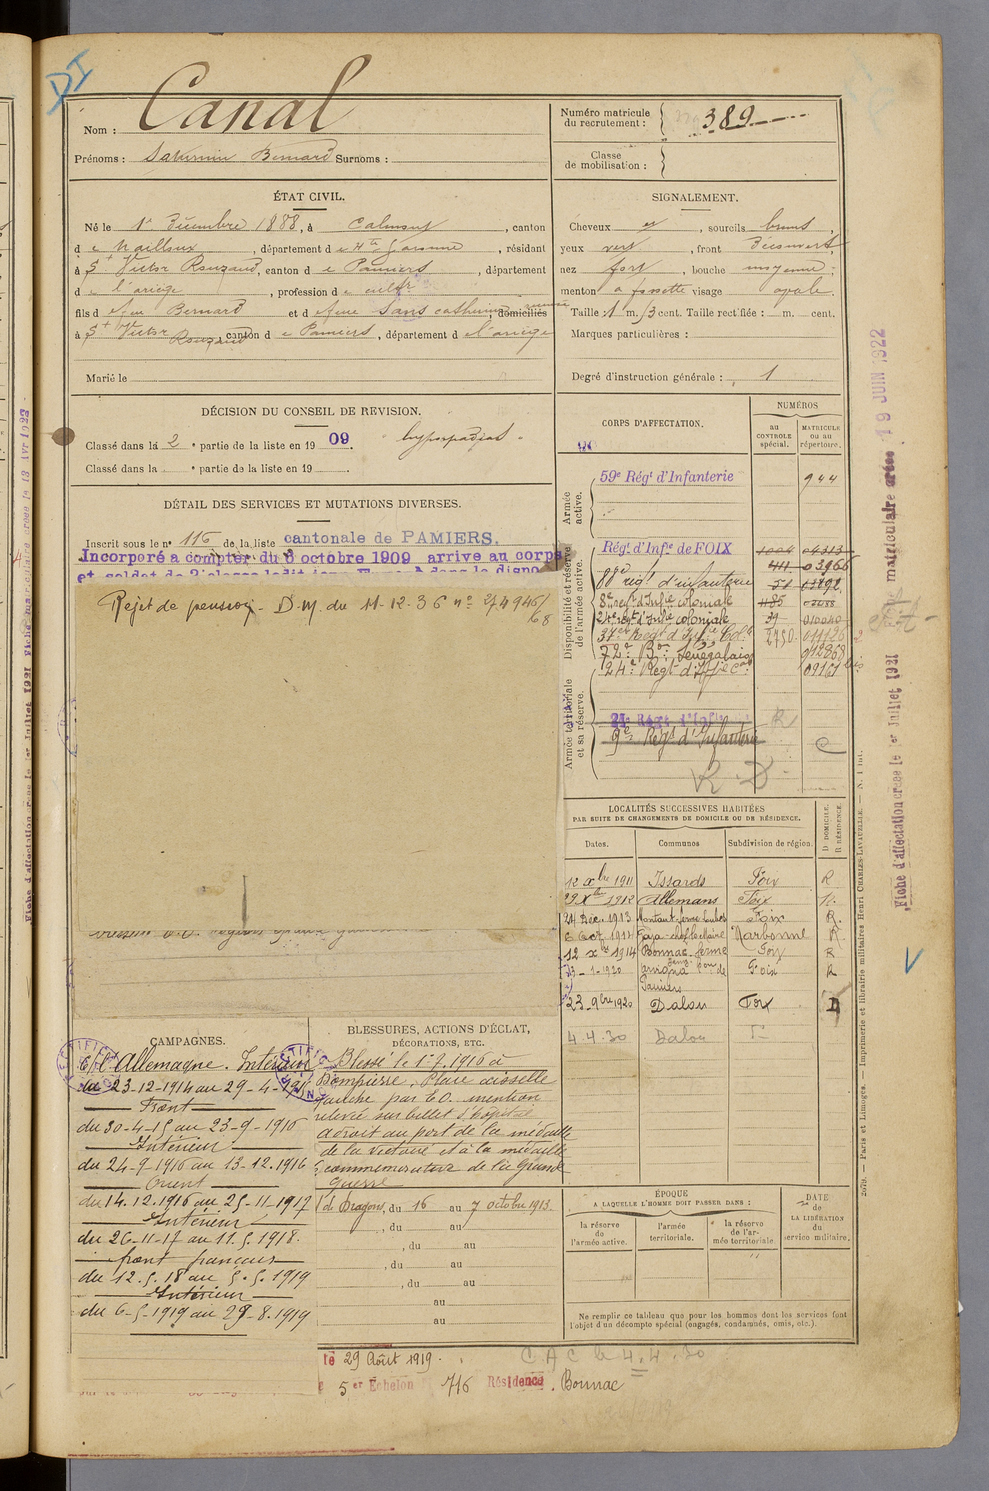 Canal
Nom :
Prénoms : Saturnin Bernard Surnoms :
Numéro matricule du recrutement : 389
Classe de mobilisation :
ÉTAT CIVIL.
Né le 1er Décembre 1888, à Calmont, canton
de Nailloux, département de Hte Garonne, résidant
à St Victor Rouzaud, canton de Pamiers, département
de l'ariège, profession de cultr
fils de feu Bernard et de feue Sans catherine domiciliés
à St Victor Rouzaud, canton de Pamiers, département de l'ariège
Marié le
SIGNALEMENT.
Cheveux et, sourcils bruns,
yeux vert, front Découvert,
nez fort, bouche moyenne,
menton à fossette visage ovale.
Taille : 1 m. cent. Taille rectifiée : m. cent.
Marques particulières :
Degré d'instruction générale : 1
DÉCISION DU CONSEIL DE REVISION.
Classé dans la 2e partie de la liste en 1909. hypospadias.
Classé dans la e partie de la liste en 19 .
DÉTAIL DES SERVICES ET MUTATIONS DIVERSES.
Inscrit sous le no 116 de la liste cantonale de PAMIERS.
Incorporé a compter du 8 octobre 1909 arrive au corps
Rejet de pension - D.M. du 11-12-36 no
CORPS D'AFFECTATION.
NUMÉROS
au CONTROLE spécial.
MATRICULE ou au répertoire.
Armée active.
59e Régt d'Infanterie 944
Disponibilité et réserve de l'armée active.
Régt d'Infie de FOIX 1004 04313
88e régt d'infanterie
8e régt d'Infie coloniale
24e régt d'Infie coloniale
37e Régt d'Infie Cole 2750
72e Bon Sénégalais
24e Régt d'Infie Cale
Armée territoriale et sa réserve.
9e Régt d'Infanterie
R.D
LOCALITÉS SUCCESSIVES HABITÉES
PAR SUITE DE CHANGEMENTS DE DOMICILE OU DE RÉSIDENCE.
Dates. Communes Subdivision de région. D DOMICILE. R RÉSIDENCE.
12 Xbre 1911 Issards Foix R
29 Xbre 1912 Allemans Foix R.
24 Déc. 1913 Foix R.
1914 Narbonne R
12 Xbre 1914 Bonnac ferme Foix R
1-1920 Pamiers Foix R
23 9bre 1920 Dalou Foix D
4.4.30 Dalou
CAMPAGNES.
C/ l'Allemagne. Intérieur
du 23-12-1914 au 29-4-1915
Front
du 30-4-15 au 23-9-1916
Intérieur
du 24-9-1916 au 13-12-1916
Orient
du 14.12.1916 au 25-11-1917
Intérieur
du 26-11-17 au 11.5.1918.
front français
du 12.5.18 au 5.5.1919
Intérieur
du 6-5-1919 au 29-8-1919
BLESSURES, ACTIONS D'ÉCLAT,
DÉCORATIONS, ETC.
Blessé le 1-7-1916 à
Dompierre. Plaie aisselle
gauche par EO. mention
relevée sur billet d'hôpital
a droit au port de la médaille
de la victoire et à la médaille
commémorative de la Grande
Guerre
de Dragons, du 16 au 7 octobre 1913.
, du au
, du au
, du au
, du au
au
au
ÉPOQUE
A LAQUELLE L'HOMME DOIT PASSER DANS :
la réserve de l'armée active.
l'armée territoriale.
la réserve de l'armée territoriale
DATE de LA LIBÉRATION du service militaire.
Ne remplir ce tableau que pour les hommes dont les services font
l'objet d'un décompte spécial (engagés, condamnés, omis, etc.).
le 29 Août 1919.
C.A.C le 4.4.30
5er Echelon 716 Résidence. Bonnac
Fiche d'affectation créée le 1er Juillet 1921 Fiche matriculaire créée 19 JUIN 1922
2079. — Paris et Limoges. — Imprimerie et librairie militaires Henri CHARLES-LAVAUZELLE.